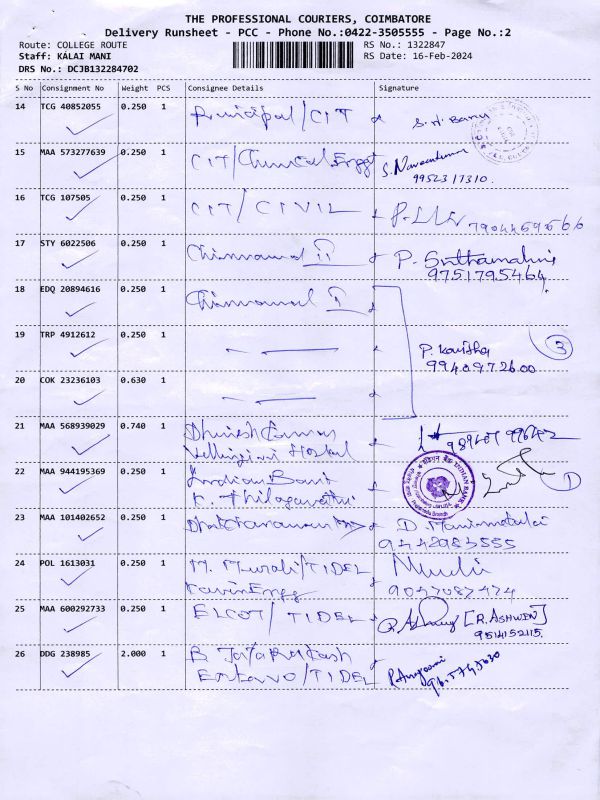 THE PROFESSIONAL COURIERS, COIMBATORE
Delivery Runsheet - PCC - Phone No.:0422-3505555 - Page No.:2
Route: COLLEGE ROUTE RS No.: 1322847
Staff: KALAI MANI RS Date: 16-Feb-2024
DRS No.: DCJB132284702
S No Consignment No Weight PCS Consignee Details Signature
14 TCG 40852055 0.250 1 Principal/CIT
15 MAA 573277639 0.250 1 CIT/Chemical Engg S. Naveenkumar
9952317310.
16 TCG 107505 0.250 1 CIT/CIVIL
17 STY 6022506 0.250 1 Chinnammal II P. Suthamathi
9751795464
18 EDQ 20894616 0.250 1 Chinnammal I
19 TRP 4912612 0.250 1 P. Kavitha 3
9940972600
20 COK 23236103 0.630 1
21 MAA 568939029 0.740 1 Dhinesh Kumar
Hostel
22 MAA 944195369 0.250 1 Indian Bank INDIAN BANK 1
K. Thilagavathi
23 MAA 101402652 0.250 1 D.
9442983555
24 POL 1613031 0.250 1 M. Murali/TIDEL
Engg
25 MAA 600292733 0.250 1 ELCOT/TIDEL [R. ASHWEN]
9514152115.
26 DDG 238985 2.000 1 B Jaya Prakash
/TIDEL